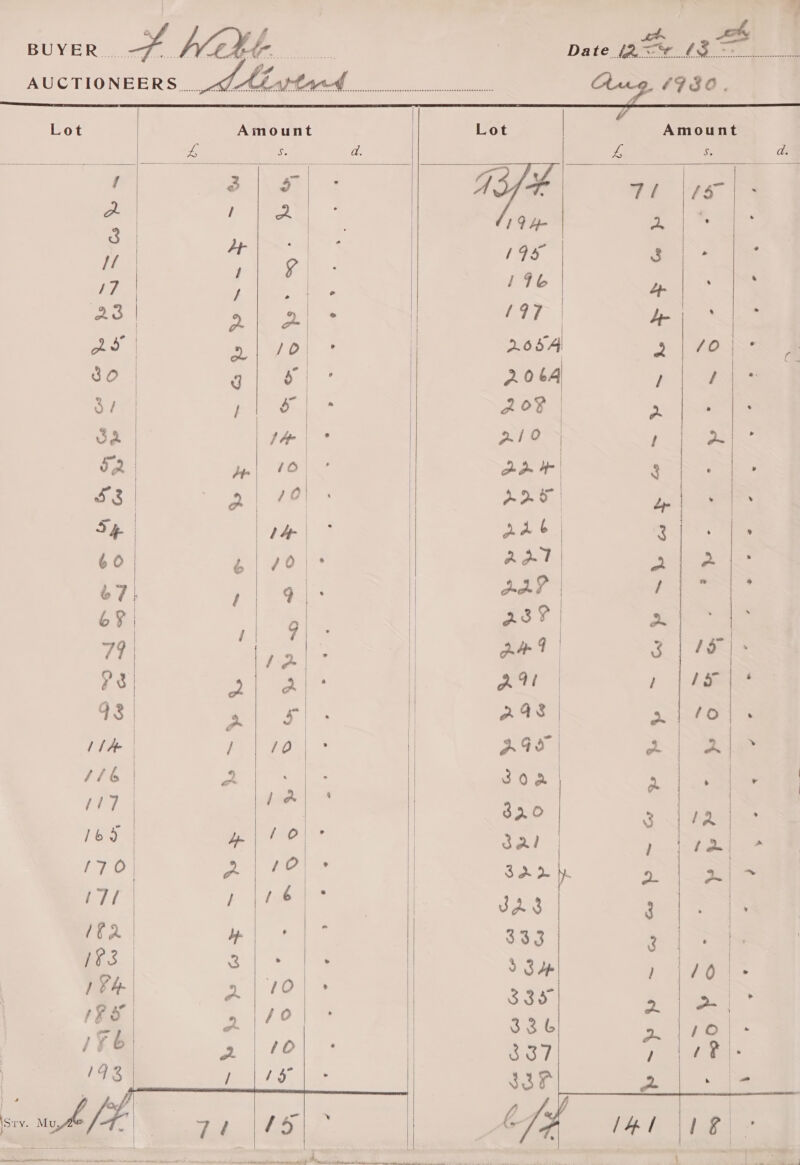 BUYER F. Webb Date 12th & 13th
AUCTIONEERS Aug 1930.
Lot Amount
£ s. d.
1 3 5 -
2 1 2 -
3 4 - -
11 1 8 -
17 1 - -
23 2 2 -
25 2 10 -
30 3 5 -
31 1 5 -
32 14 -
52 4 10 -
53 2 10 -
54 14 -
60 6 10 -
67 1 9 -
68 1 9 -
79 12 -
83 2 2 -
93 2 5 -
114 1 10 -
116 2 - -
117 12 -
165 4 10 -
170 2 10 -
171 1 16 -
182 4 - -
183 3 - -
184 2 10 -
185 2 10 -
186 2 10 -
193 1 15 -
Stv. Mu. 71 15 -
Lot Amount
£ s. d.
B/F 71 15 -
194 2 - -
195 3 - -
196 4 - -
197 4 - -
205A 2 10 -
206A 1 1 -
208 2 - -
210 1 2 -
224 3 - -
225 4 - -
226 3 - -
227 2 2 -
228 1 - -
238 2 - -
249 3 15 -
291 1 15 -
293 2 10 -
295 2 2 -
302 2 - -
320 3 12 -
321 1 12 -
322 2 2 -
323 3 - -
333 3 - -
334 1 10 -
335 2 2 -
336 2 10 -
337 1 18 -
338 2 - -
C/F 141 18 -